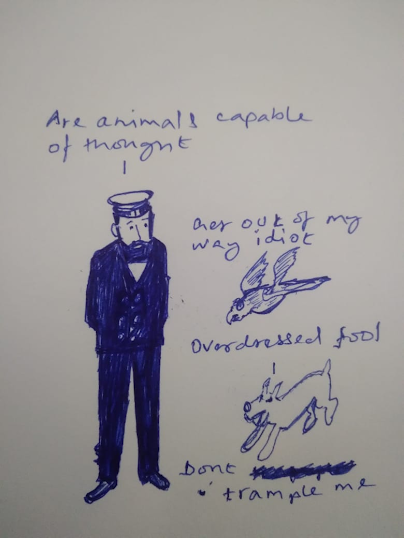 Are animals capable
of thought
Get out of my
way idiot
Overdressed fool
Dont
trample me